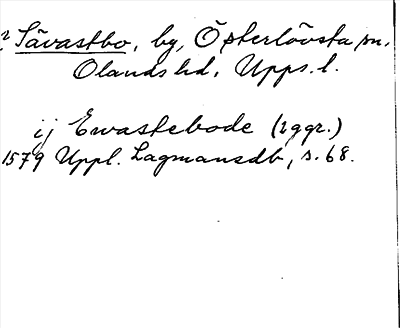 ? Sävastbo, by, Österlövsta sn.
Olands hd, Upps. l.
ij Ewastebode (2ggr.)
1579 Uppl. Lagmansdb, s. 68.